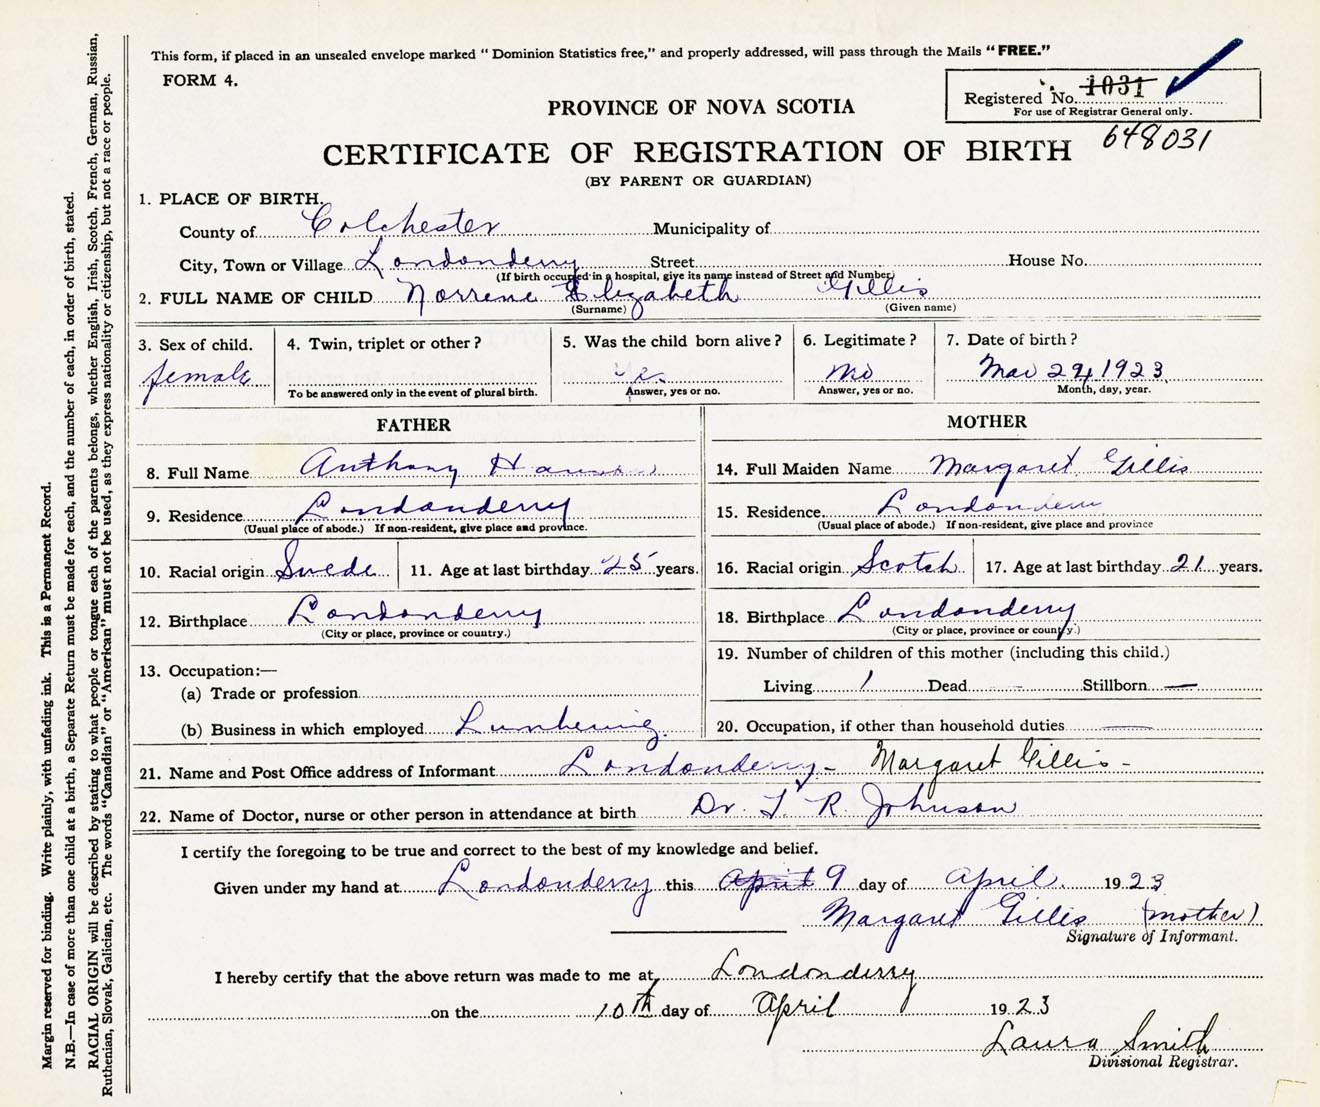 This form, if placed in an unsealed envelope marked " Dominion Statistics free," and properly addressed, will pass through the Mails " FREE."
FORM 4.
Registered No. 1031
For use of Registrar General only.
PROVINCE OF NOVA SCOTIA
648031
CERTIFICATE OF REGISTRATION OF BIRTH
(BY PARENT OR GUARDIAN)
1. PLACE OF BIRTH.
County of Colchester Municipality of
City, Town or Village Londonderry Street House No.
(If birth occurred in a hospital, give its name instead of Street and Number)
2. FULL NAME OF CHILD Norrene Elizabeth Gillis
(Surname) (Given name)
3. Sex of child. 4. Twin, triplet or other ? 5. Was the child born alive ? 6. Legitimate ? 7. Date of birth ?
female no Mar 1923
To be answered only in the event of plural birth. Answer, yes or no. Answer, yes or no. Month, day, year.
FATHER MOTHER
8. Full Name Anthony 14. Full Maiden Name Margaret Gillis
9. Residence Londonderry 15. Residence Londonderry
(Usual place of abode.) If non-resident, give place and province. (Usual place of abode.) If non-resident, give place and province
10. Racial origin Swede 11. Age at last birthday 25 years. 16. Racial origin Scotch 17. Age at last birthday 21 years.
12. Birthplace Londonderry 18. Birthplace Londonderry
(City or place, province or country.) (City or place, province or country.)
13. Occupation:— 19. Number of children of this mother (including this child.)
(a) Trade or profession Living 1 Dead — Stillborn —
(b) Business in which employed Lumbering. 20. Occupation, if other than household duties —
21. Name and Post Office address of Informant Londonderry - Margaret Gillis -
22. Name of Doctor, nurse or other person in attendance at birth Dr. T. R. Johnson
I certify the foregoing to be true and correct to the best of my knowledge and belief.
Given under my hand at Londonderry this April 9 day of April. 1923
Margaret Gillis (mother)
Signature of Informant.
I hereby certify that the above return was made to me at Londonderry
on the 10th day of April 1923
Laura Smith
Divisional Registrar.
Margin reserved for binding. Write plainly, with unfading ink. This is a Permanent Record.
N.B.—In case of more than one child at a birth, a Separate Return must be made for each, and the number of each, in order of birth, stated.
RACIAL ORIGIN will be described by stating to what people or tongue each of the parents belongs, whether English, Irish, Scotch, French, German, Russian,
Ruthenian, Slovak, Galician, etc. The words "Canadian" or "American" must not be used, as they express nationality or citizenship, but not a race or people.